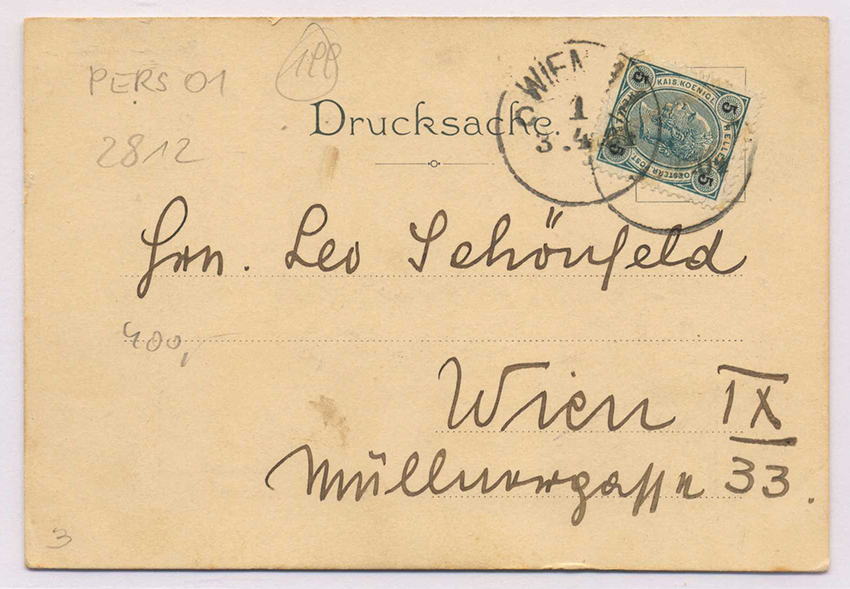 PERS 01
1PP
2812
Drucksache.
WIEN
1
3.4
KAIS. KOENIGL.
OESTERR. POST.
5 5 5 5
Hrn. Leo Schönfeld
400,-
Wien IX
Müllnergasse 33.
3